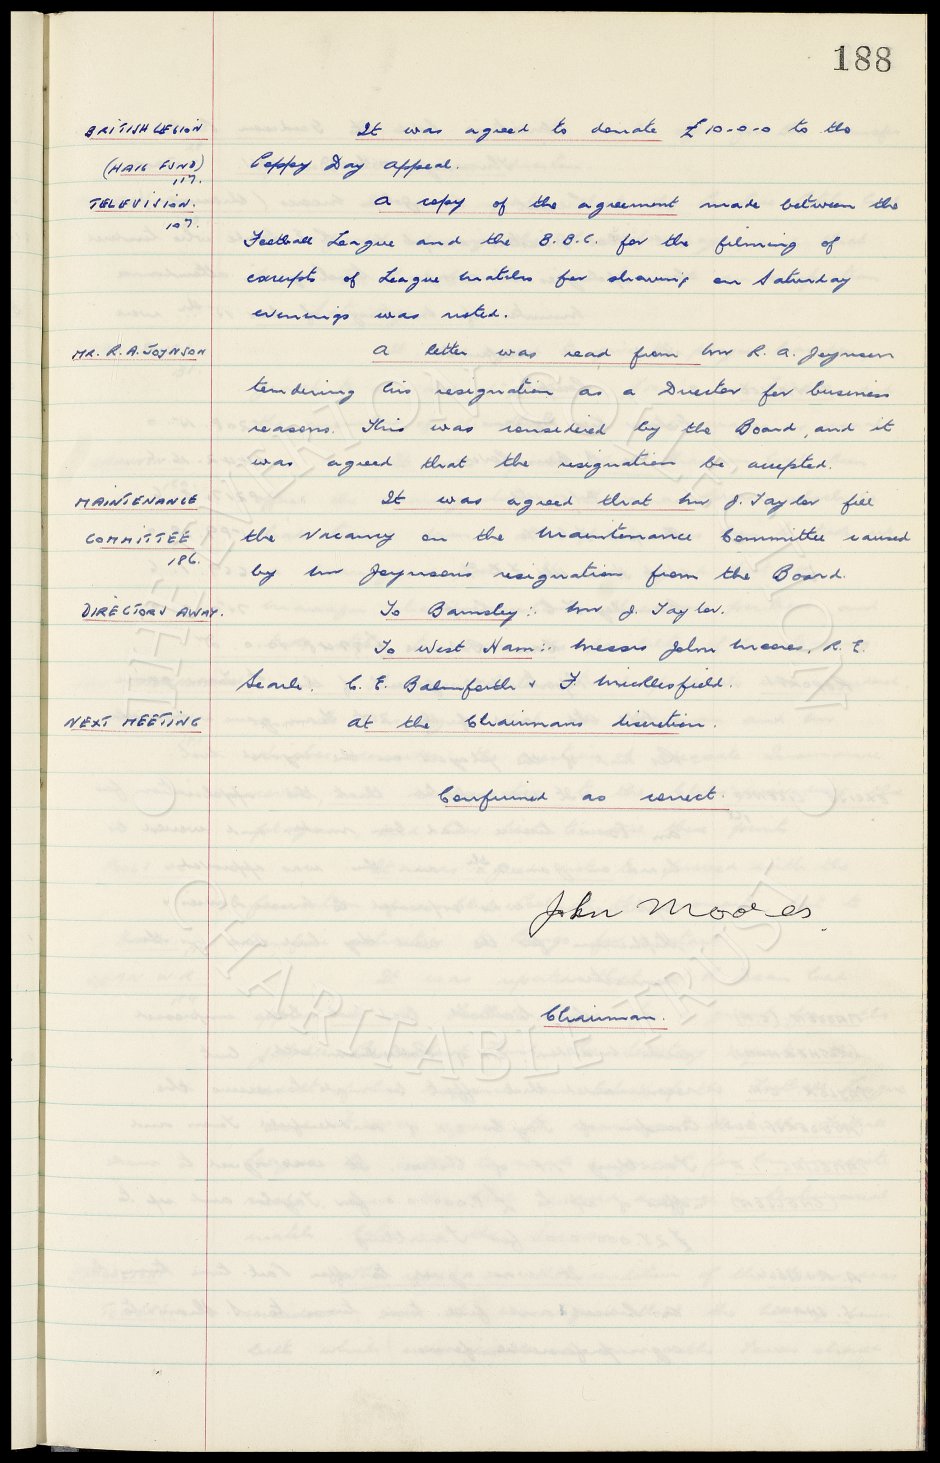 188
BRITISH LEGION It was agreed to donate £10-0-0 to the
(HAIG FUND) Poppy Day Appeal.
117.
TELEVISION. A copy of the agreement made between the
107.
Football League and the B.B.C. for the filming of
excerpts of League matches for showing on Saturday
evenings was noted.
MR. R.A. JOYNSON A letter was read from Mr R. A. Joynson
tendering his resignation as a Director for business
reasons. This was considered by the Board, and it
was agreed that the resignation be accepted.
MAINTENANCE It was agreed that Mr J. Taylor fill
COMMITTEE the vacancy on the Maintenance Committee caused
186.
by Mr Joynson's resignation from the Board.
DIRECTORS AWAY. To Barnsley:. Mr J. Taylor.
To West Ham:. Messrs John Moores, R. E.
Searle, C. E. Balmforth & F. Micklesfield.
NEXT MEETING At the Chairmans discretion.
Confirmed as correct.
John Moores.
Chairman.
THE EVERTON COLLECTION
CHARITABLE TRUST